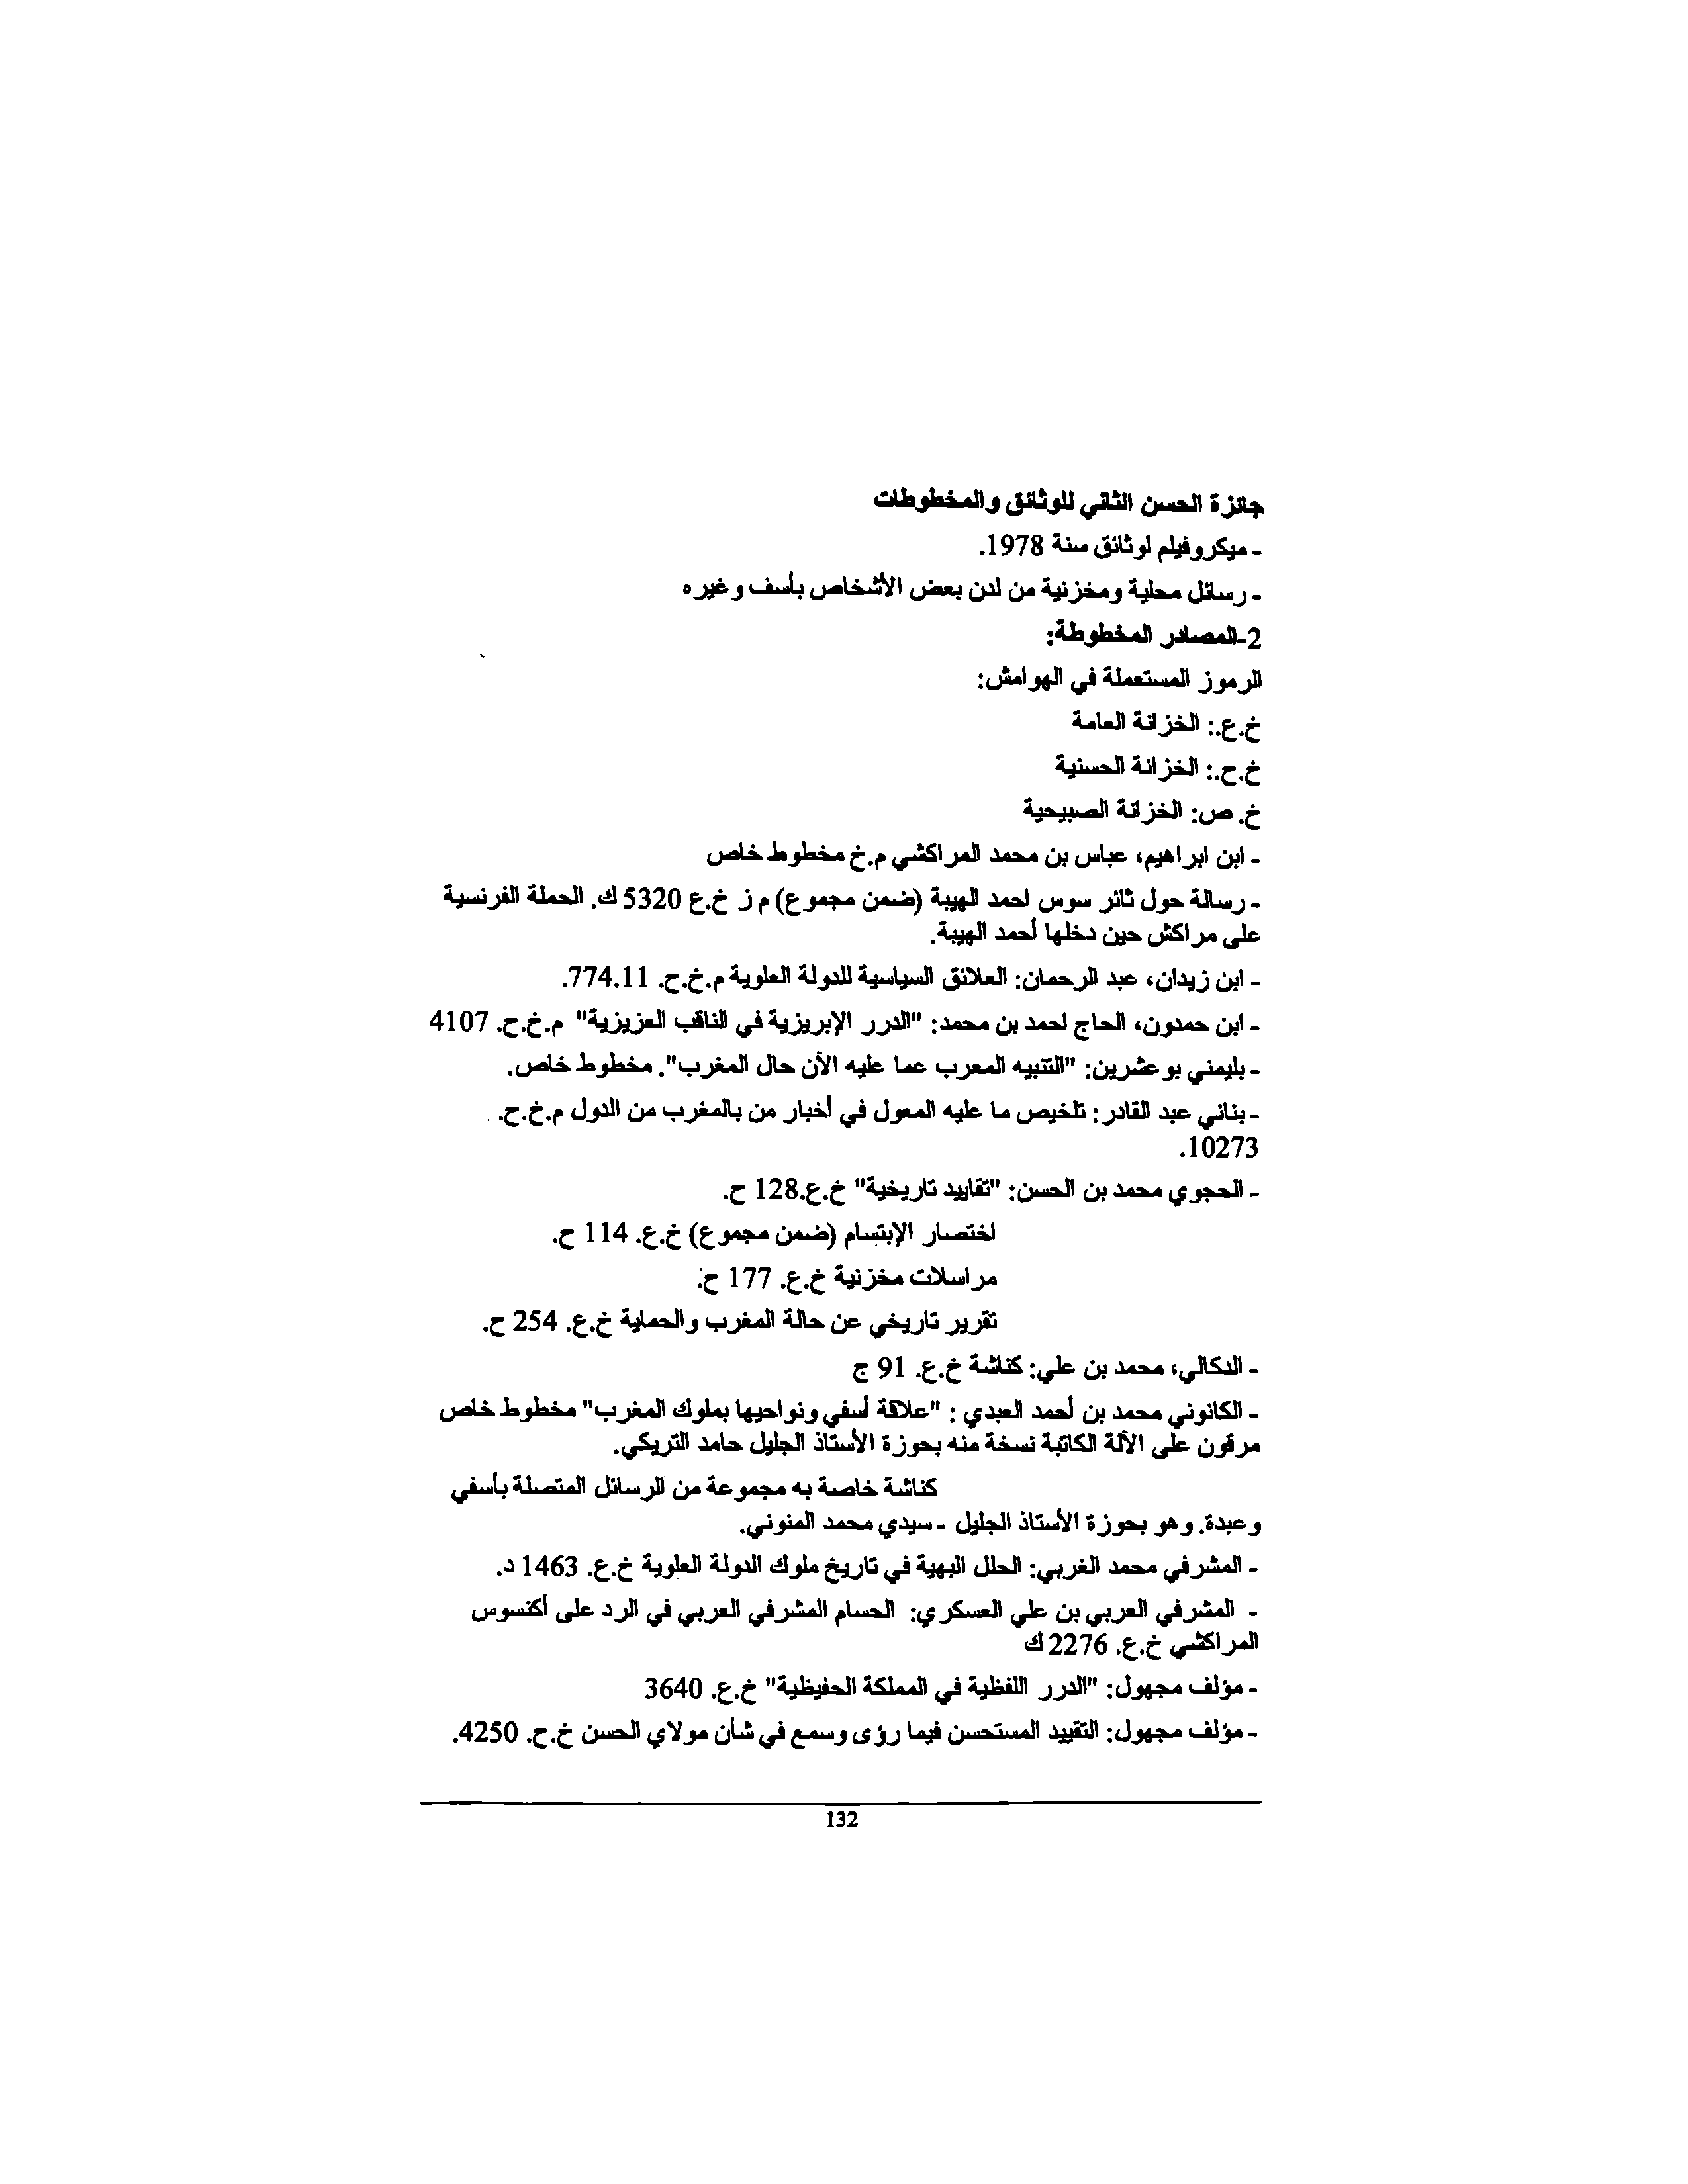 جائزة الحسن الثاني للوثائق والمخطوطات
- ميكروفيلم لوثائق سنة 1978.
- رسائل محلية ومخزنية من لدن بعض الأشخاص بأسف وغيره
2-المصادر المخطوطة:
الرموز المستعملة في الهوامش:
خ.ع.: الخزانة العامة
خ.ح.: الخزانة الحسنية
خ. ص: الخزانة الصبيحية
- ابن ابراهيم، عباس بن محمد المراكشي م.خ مخطوط خاص
- رسالة حول ثائر سوس احمد الهيبة (ضمن مجموع) م ز خ.ع 5320 ك. الحملة الفرنسية
على مراكش حين دخلها أحمد الهيبة.
- ابن زيدان، عبد الرحمان: العلائق السياسية للدولة العلوية م.خ.ح. 774.11.
- ابن حمدون، الحاج احمد بن محمد: "الدرر الإبريزية في الناقب العزيزية" م.خ.ح. 4107
- بليمني بوعشرين: "التنبيه المعرب عما عليه الآن حال المغرب". مخطوط خاص.
- بناني عبد القادر: تلخيص ما عليه المعول في أخبار من بالمغرب من الدول م.خ.ح.
10273.
- الحجوي محمد بن الحسن: "تقاييد تاريخية" خ.ع.128 ح.
اختصار الإبتسام (ضمن مجموع) خ.ع. 114 ح.
مراسلات مخزنية خ.ع. 177 ح.
تقرير تاريخي عن حالة المغرب والحماية خ.ع. 254 ح.
- الدكالي، محمد بن علي: كناشة خ.ع. 91 ج
- الكانوني محمد بن أحمد العبدي : "علاقة أسفي ونواحيها بملوك المغرب" مخطوط خاص
مرقون على الآلة الكاتبة نسخة منه بحوزة الأستاذ الجليل حامد التريكي.
كناشة خاصة به مجموعة من الرسائل المتصلة بأسفي
وعبدة. وهو بحوزة الأستاذ الجليل - سيدي محمد المنوني.
- المشرفي محمد الغربي: الحلل البهية في تاريخ ملوك الدولة العلوية خ.ع. 1463 د.
- المشرفي العربي بن علي العسكري: الحسام المشرفي العربي في الرد على أكنسوس
المراكشي خ.ع. 2276 ك
- مؤلف مجهول: "الدرر اللفظية في المملكة الحفيظية" خ.ع. 3640
- مؤلف مجهول: التقييد المستحسن فيما رؤى وسمع في شأن مولاي الحسن خ.ح. 4250.
132